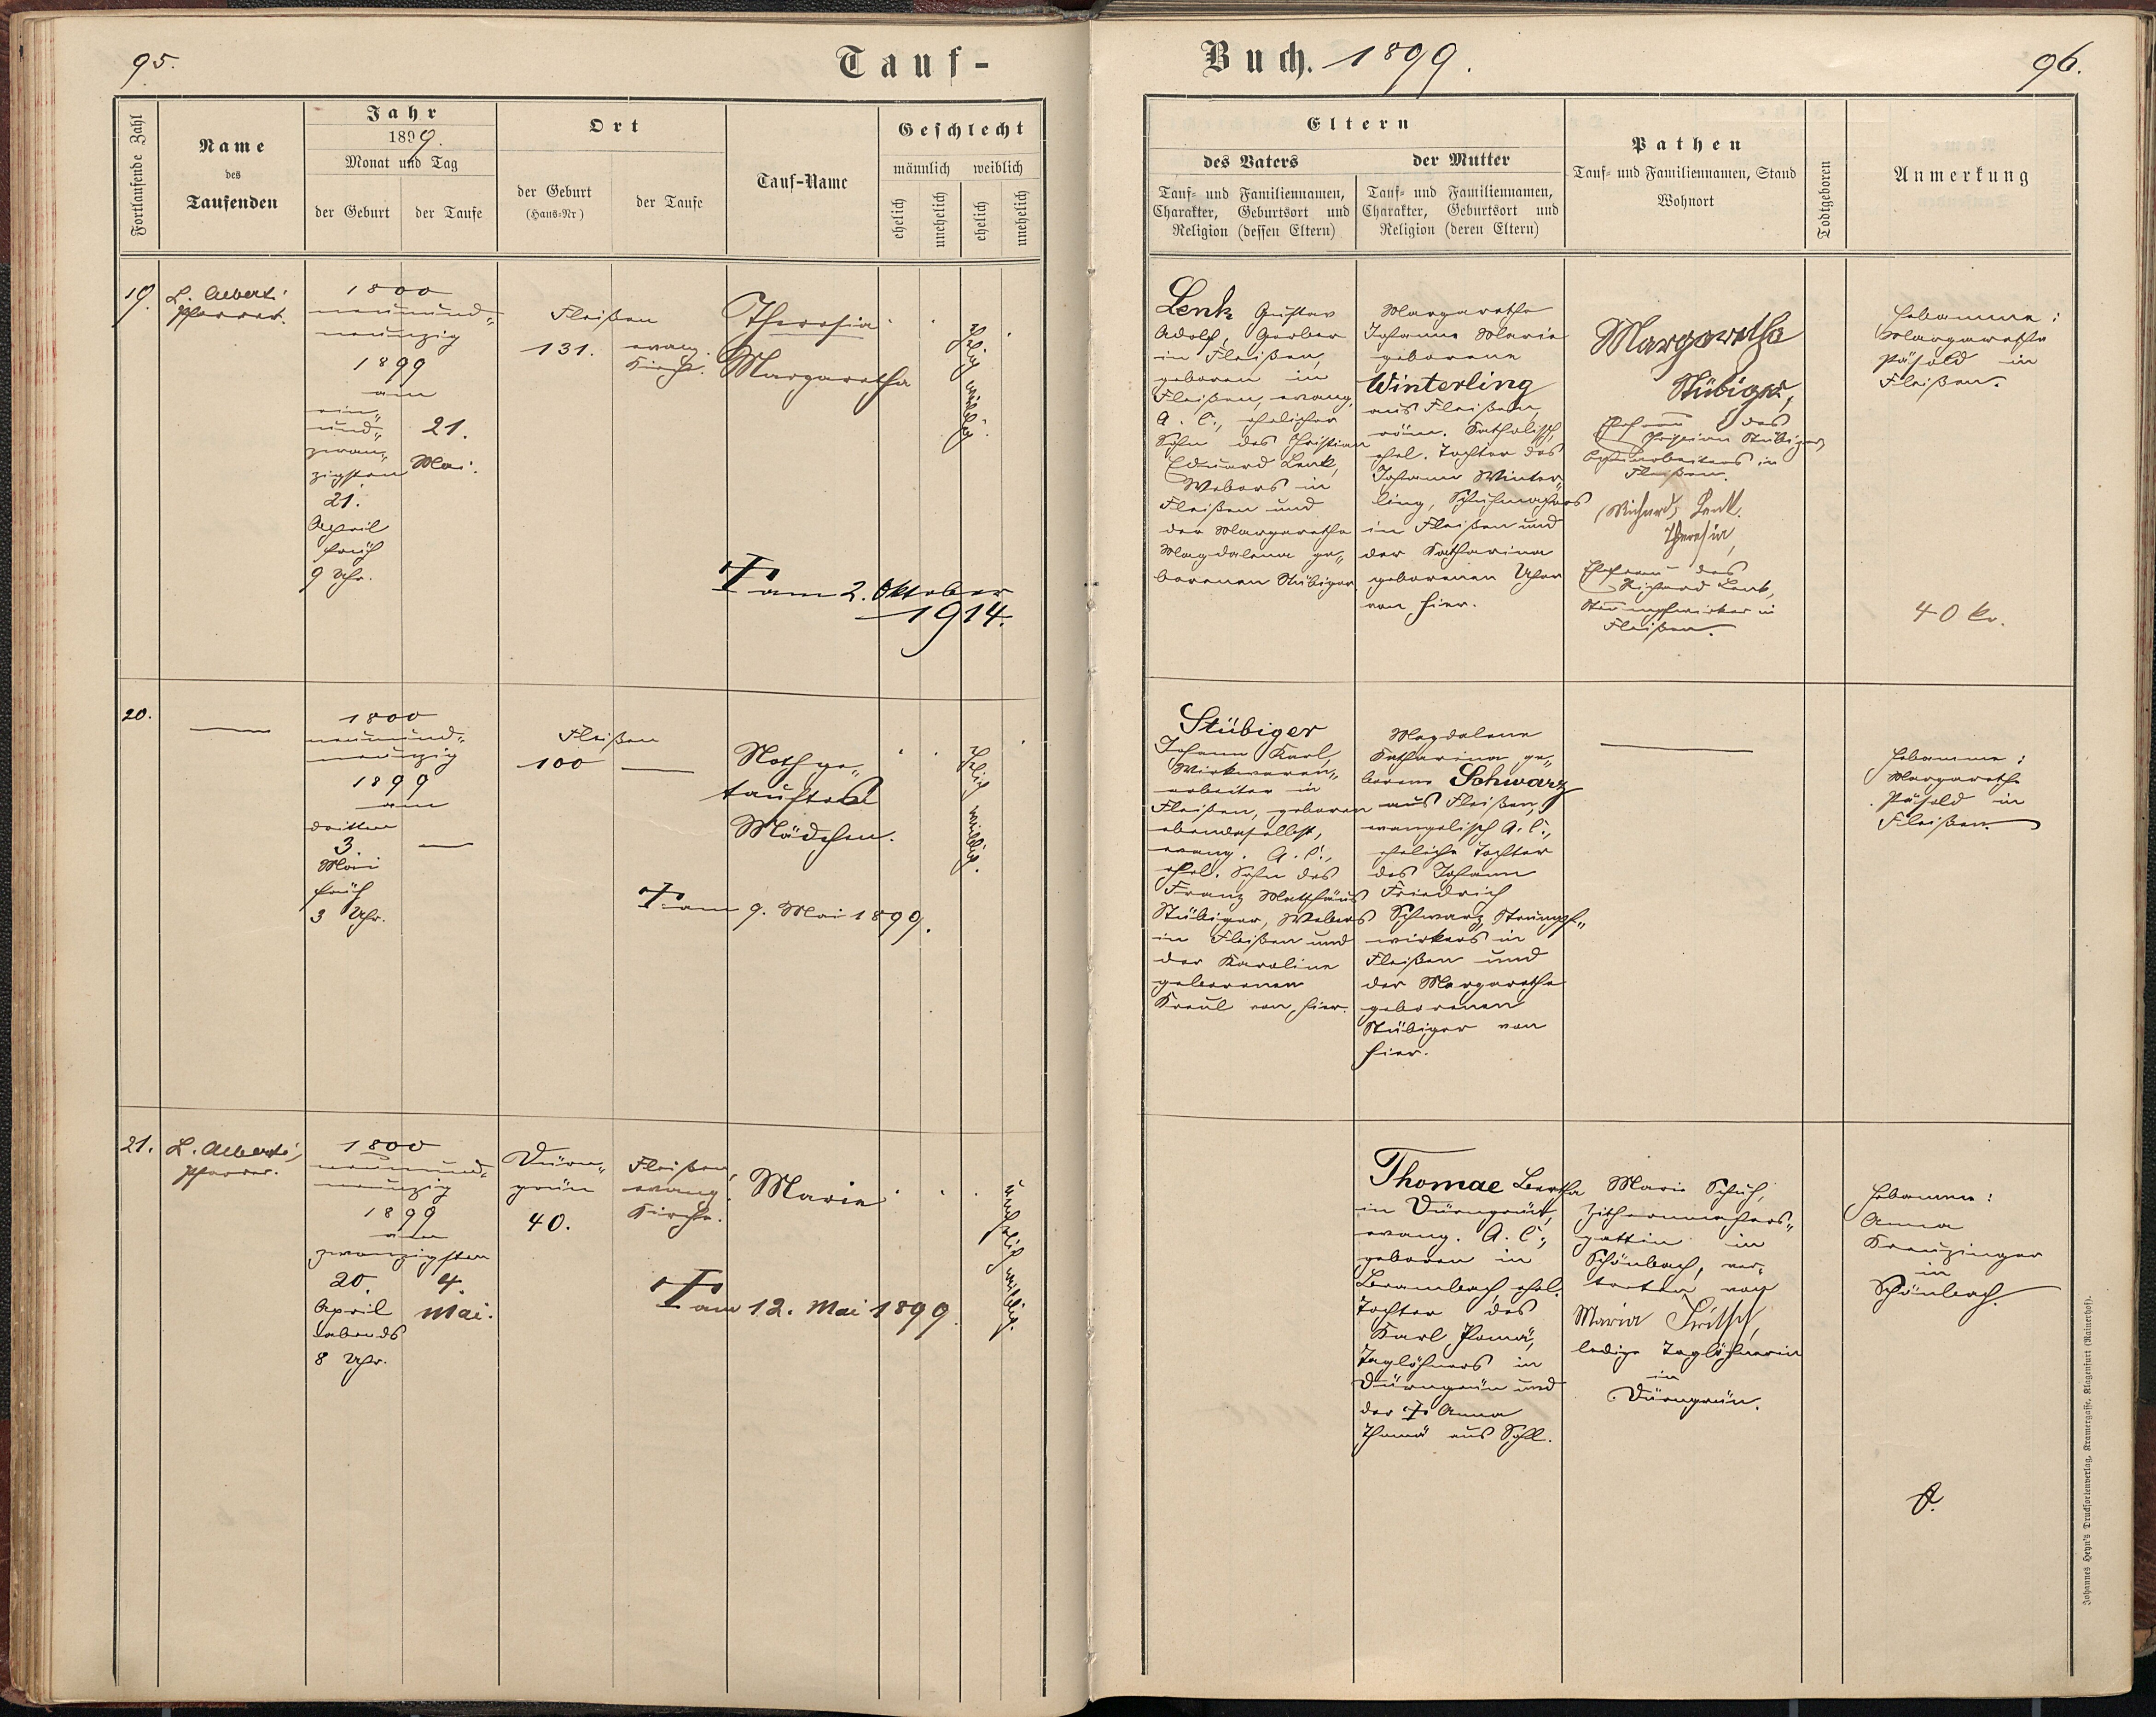 95.
Tauf-
Fortlaufende Zahl
Name
des
Taufenden
Jahr
1899.
Monat und Tag
der Geburt
der Taufe
Ort
der Geburt
(Haus-Nr)
der Taufe
Tauf-Name
Geschlecht
männlich weiblich
ehelich
unehelich
ehelich
unehelich
19.
L. Alberti
Pfarrer.
1800
neunund-
neunzig
1899
am
ein-
und-
zwan-
zigsten
21.
April
früh
9 Uhr.
21.
Mai.
Fleißen
131.
evang.
Kirche.
Theresia
Margaretha
Ehelig weiblig.
† am 2. Oktober
1914.
20.
1800
neunund-
neunzig
1899
am
dritten
3.
Mai
früh
3 Uhr.
Fleißen
100
Nothge-
tauftes
Mädchen.
Ehelig weiblig.
† am 9. Mai 1899.
21.
L. Alberti,
Pfarrer.
1800
neunund-
neunzig
1899
am
zwanzigsten
20.
April
abends
8 Uhr.
4.
Mai.
Dürn-
grün
40.
Fleißen,
evang.
Kirche.
Marie
unehelig weiblig.
† am 12. Mai 1899.
Buch. 1899.
96.
Eltern
des Vaters
Tauf- und Familiennamen,
Charakter, Geburtsort und
Religion (dessen Eltern)
der Mutter
Tauf- und Familiennamen,
Charakter, Geburtsort und
Religion (deren Eltern)
Pathen
Tauf- und Familiennamen, Stand
Wohnort
Todtgeboren
Anmerkung
Lenk Gustav
Adolf, Gerber
in Fleißen,
geboren in
Fleißen, evang.
A. C., ehelicher
Sohn des Christian
Eduard Lenk,
Webers in
Fleißen und
der Margaretha
Magdalena ge-
borenen Stübiger
Margaretha
Johanne Marie
geborene
Winterling
aus Fleißen,
röm. Katholisch,
ehel. Tochter des
Johann Winter-
ling, Schuhmachers
in Fleißen und
der Katharina
geborenen
von hier.
Margaretha
Stübiger,
Ehefrau des
Christian Stübiger,
in
Fleißen.
Richard Lenk.
Theresia,
Ehefrau des
Richard Lenk,
Strumpfwirker in
Fleißen.
Hebamme:
Margaretha
Pásold in
Fleißen.
40 kr.
Stübiger
Johann Karl,
Wirkwaren-
arbeiter in
Fleißen, geboren
ebendaselbst,
evang. A. C.,
ehel. Sohn des
Franz Matthäus
Stübiger, Webers
in Fleißen und
der Karoline
geborenen
Kreul von hier.
Magdalene
Katharina ge-
borene Schwarz
aus Fleißen,
evangelisch A. C.,
eheliche Tochter
des Johann
Friedrich
Schwarz, Strumpf-
wirkers in
Fleißen und
der Margaretha
geborenen
Stübiger von
hier.
Hebamme:
Margaretha
Pásold in
Fleißen.
Thomae Bertha
in Dürngrün,
evang. A. C.,
geboren in
Brambach, ehel.
Tochter des
Karl Thomä,
Taglöhners in
Dürngrün und
der † Anna
Thomä aus Sohl.
Marie Schuh,
Zithernmachers-
gattin in
Schönbach, ver-
treten von
Maria Fritsch,
ledige Taglöhnerin
in
Dürngrün.
Hebamme:
Anna
Kreuzinger
in
Schönbach.
Johannes Heyn's Drucksortenverlag, Kramergasse, Klagenfurt (Rainerhof).